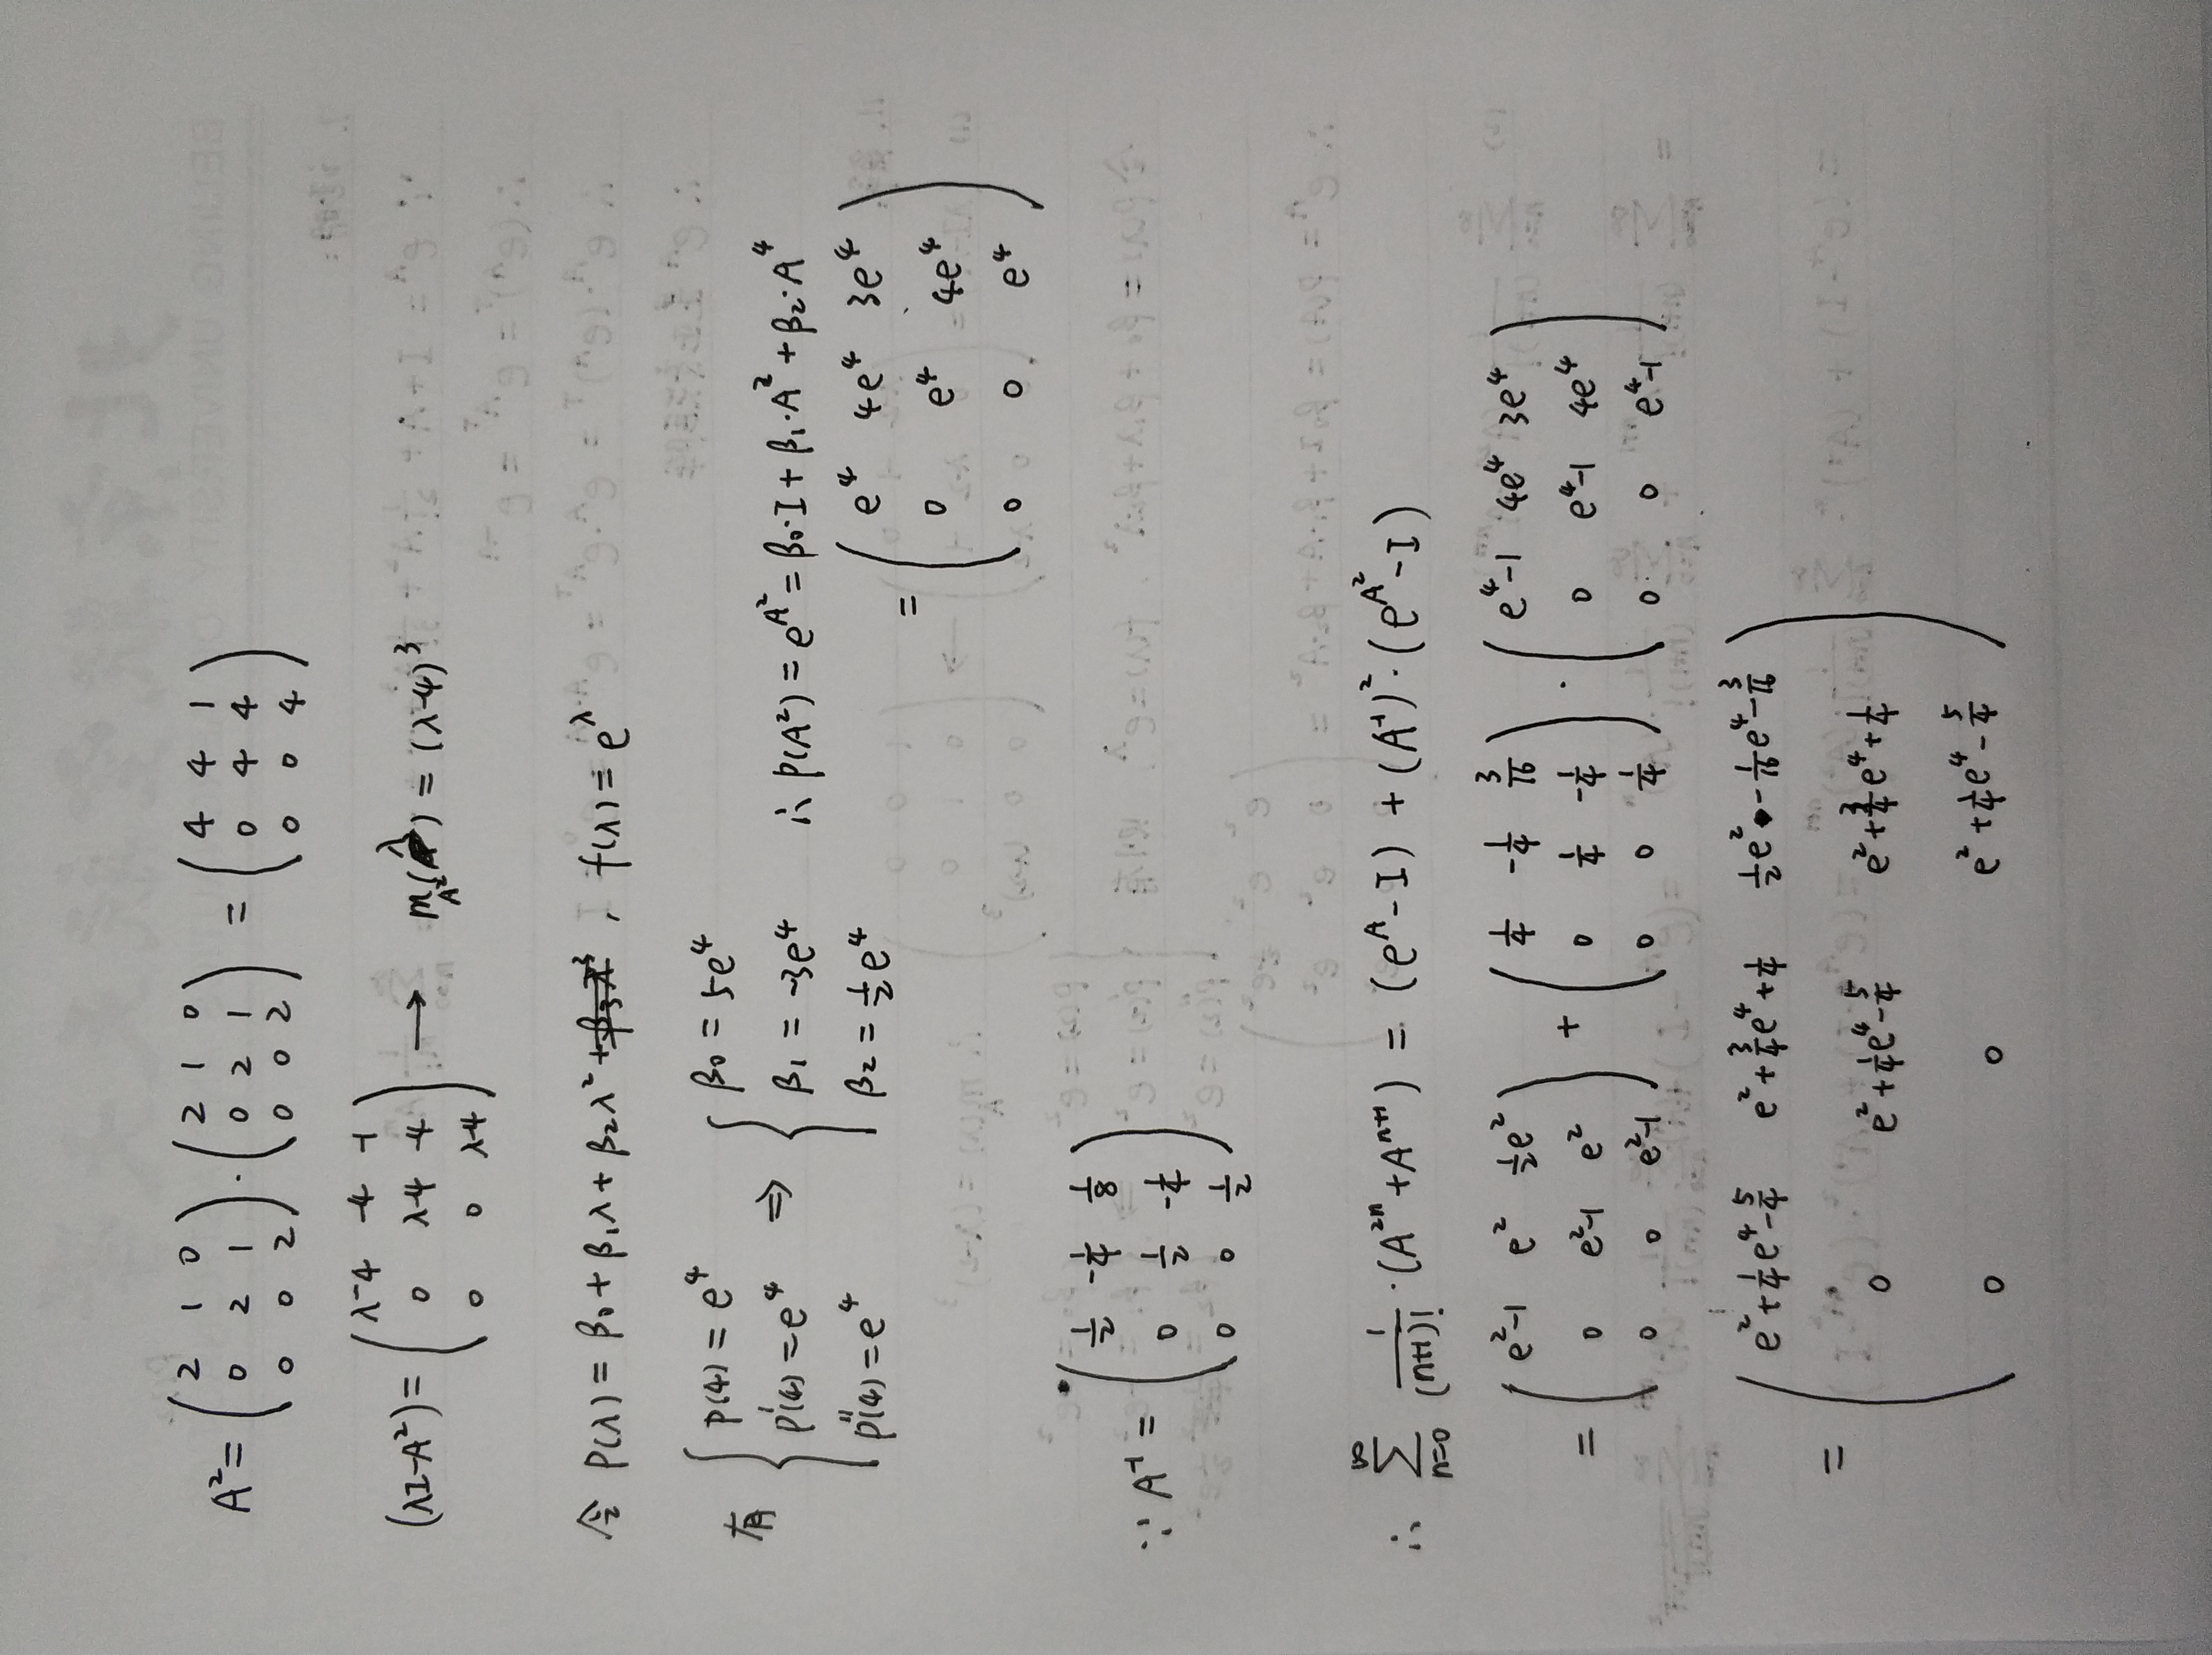 A² = ( 2 1 0 ; 0 2 1 ; 0 0 2 ) · ( 2 1 0 ; 0 2 1 ; 0 0 2 ) = ( 4 4 1 ; 0 4 4 ; 0 0 4 )
(λI-A²) = ( λ-4 -4 -1 ; 0 λ-4 -4 ; 0 0 λ-4 ) → m_A²(λ) = (λ-4)³
令 P(λ) = β₀ + β₁λ + β₂λ² , f(λ) = e^λ
有 { P(4) = e⁴ ; P'(4) = e⁴ ; P''(4) = e⁴ ⇒ { β₀ = 5e⁴ ; β₁ = -3e⁴ ; β₂ = ½e⁴ ∴ P(A²) = e^A² = β₀·I + β₁·A² + β₂·A⁴
= ( e⁴ 4e⁴ 3e⁴ ; 0 e⁴ 4e⁴ ; 0 0 e⁴ )
∵ A⁻¹ = ( 1/2 -1/4 1/8 ; 0 1/2 -1/4 ; 0 0 1/2 )
∴ ∑_{n=0}^{∞} 1/(n+1)! · (A²ⁿ + Aⁿ⁺¹) = (e^A - I) + (A⁻¹)² · (e^A² - I)
= ( e²-1 e² ½e² ; 0 e²-1 e² ; 0 0 e²-1 ) + ( 1/4 -1/4 3/16 ; 0 1/4 -1/4 ; 0 0 1/4 ) · ( e⁴-1 4e⁴ 3e⁴ ; 0 e⁴-1 4e⁴ ; 0 0 e⁴-1 )
= ( e²+1/4e⁴-5/4 e²+3/4e⁴+1/4 1/2e²-1/16e⁴-3/16 ; 0 e²+1/4e⁴-5/4 e²+3/4e⁴+1/4 ; 0 0 e²+1/4e⁴-5/4 )